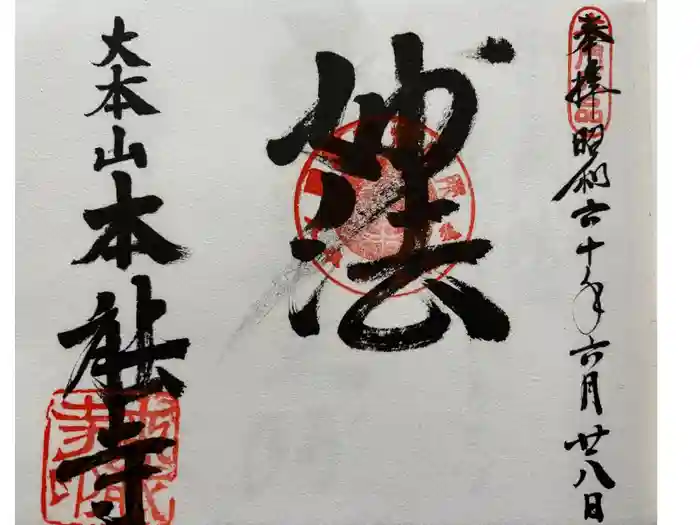 奉拝 昭和六十年六月廿八日
妙法
大本山本能寺